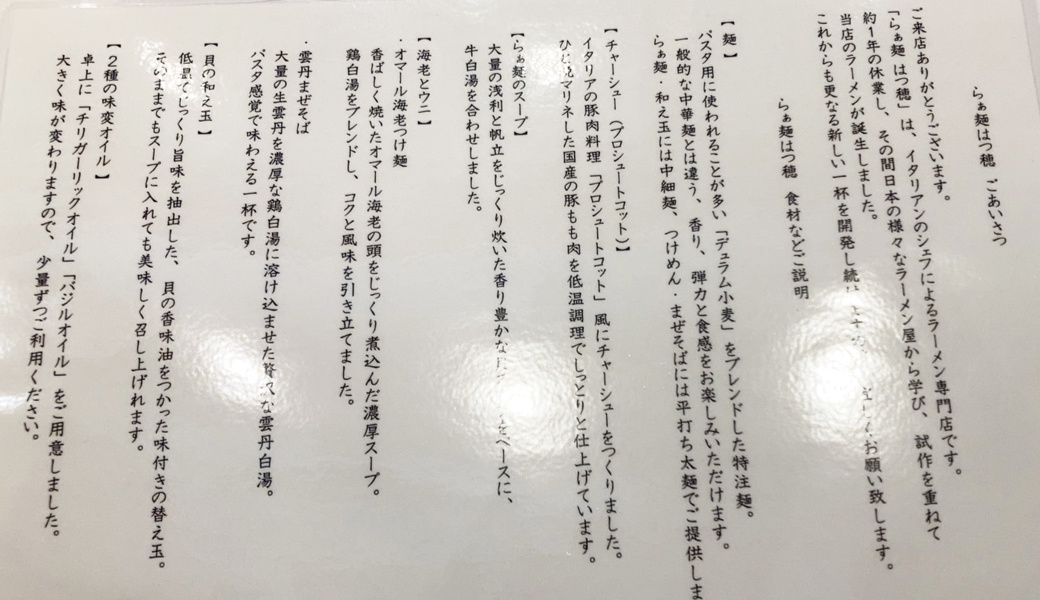 らぁ麺はつ穂 ごあいさつ
ご来店ありがとうございます。
「らぁ麺 はつ穂」は、イタリアンのシェフによるラーメン専門店です。
約1年の休業し、その間日本の様々なラーメン屋から学び、試作を重ねて
当店のラーメンが誕生しました。
これからも更なる新しい一杯を開発し続け お願い致します。
らぁ麺はつ穂 食材などご説明
【麺】
パスタ用に使われることが多い「デュラム小麦」をブレンドした特注麺。
一般的な中華麺とは違う、香り、弾力と食感をお楽しみいただけます。
らぁ麺・和え玉には中細麺、つけめん・まぜそばには平打ち太麺でご提供しま
【チャーシュー(プロシュートコット)】
イタリアの豚肉料理「プロシュートコット」風にチャーシューをつくりました。
マリネした国産の豚もも肉を低温調理でしっとりと仕上げています。
【らぁ麺のスープ】
大量の浅利と帆立をじっくり炊いた香り豊かな をベースに、
牛白湯を合わせしました。
【海老とウニ】
・オマール海老つけ麺
香ばしく焼いたオマール海老の頭をじっくり煮込んだ濃厚スープ。
鶏白湯をブレンドし、コクと風味を引き立てました。
・雲丹まぜそば
大量の生雲丹を濃厚な鶏白湯に溶け込ませた贅沢な雲丹白湯。
パスタ感覚で味わえる一杯です。
【貝の和え玉】
低温でじっくり旨味を抽出した、貝の香味油をつかった味付きの替え玉。
そのままでもスープに入れても美味しく召し上げれます。
【2種の味変オイル】
卓上に「チリガーリックオイル」「バジルオイル」をご用意しました。
大きく味が変わりますので、少量ずつご利用ください。